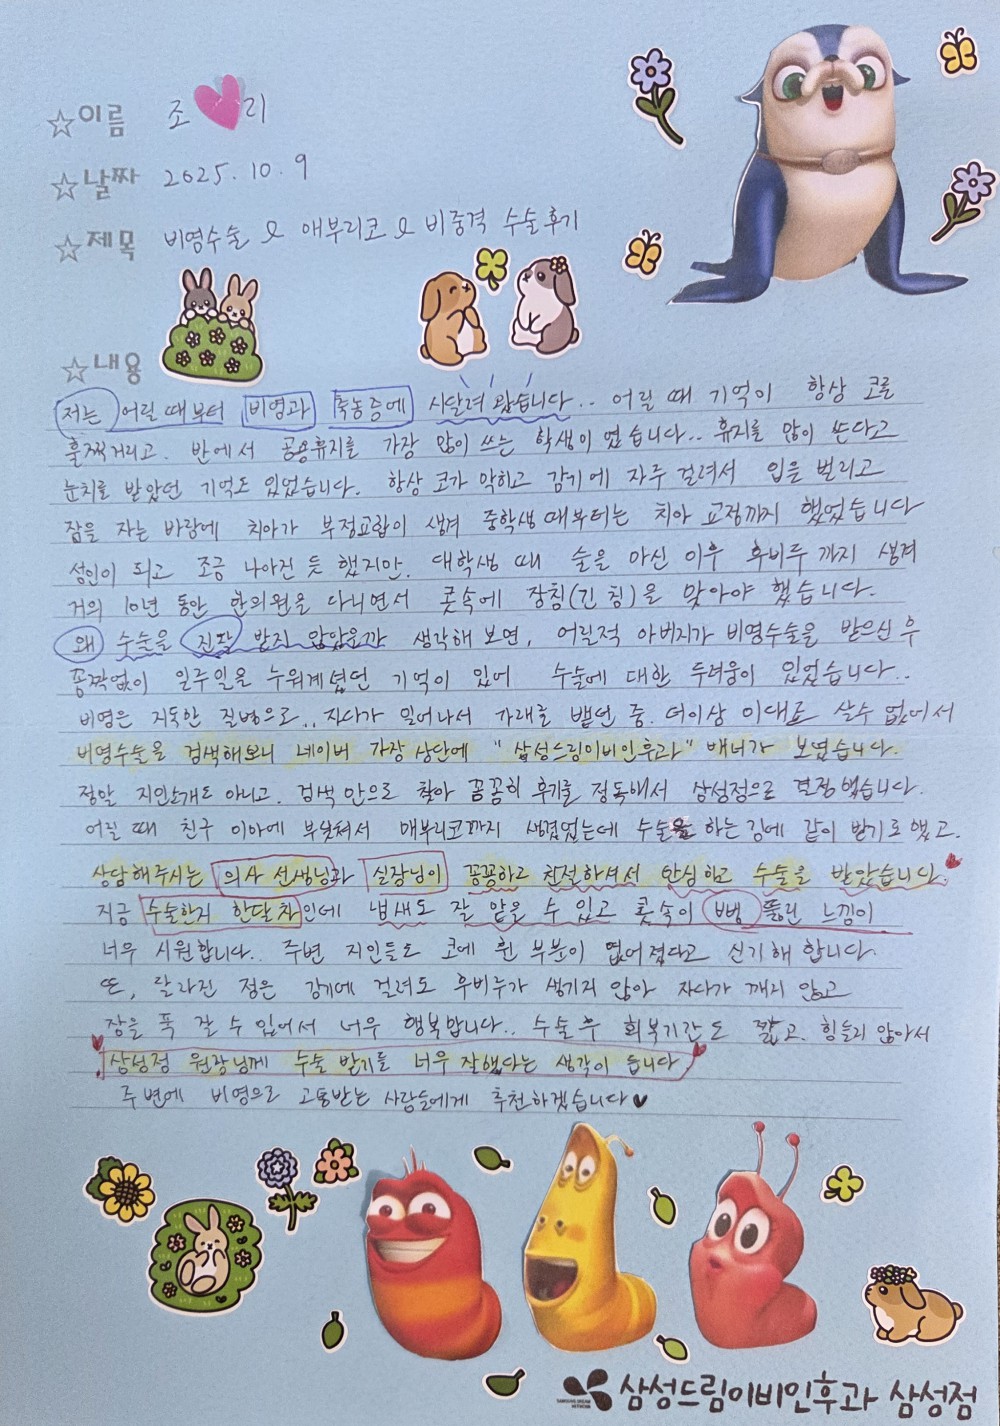 ☆이름 조♥리
☆날짜 2025. 10. 9
☆제목 비염수술 & 매부리코 & 비중격 수술후기
☆내용
저는 어릴 때부터 비염과 축농증에 시달려 왔습니다.. 어릴 때 기억이 항상 코를
훌쩍거리고. 반에서 공용휴지를 가장 많이 쓰는 학생이였습니다.. 휴지를 많이 쓴다고
눈치를 받았던 기억도 있었습니다. 항상 코가 막히고 감기에 자주 걸려서 입을 벌리고
잠을 자는 바람에 치아가 부정교합이 생겨 중학생때부터는 치아 교정까지 했었습니다
성인이 되고 조금 나아진 듯 했지만. 대학생 때 술을 마신 이후 후비루까지 생겨
거의 10년 동안 한의원을 다니면서 콧속에 장침(긴 침)을 맞아야 했습니다.
왜 수술을 진작 받지 않았을까 생각해 보면, 어릴적 아버지가 비염수술을 받으신 후
꼼짝없이 일주일을 누워계셨던 기억이 있어 수술에 대한 두려움이 있었습니다..
비염은 지독한 질병으로.. 자다가 일어나서 가래를 뱉던 중. 더이상 이대로 살수 없어서
비염수술을 검색해보니 네이버 가장 상단에 "삼성드림이비인후과" 배너가 보였습니다.
정말 지인소개도 아니고. 검색만으로 찾아 꼼꼼히 후기를 정독해서 삼성점으로 결정했습니다.
어릴 때 친구 이마에 부딪쳐서 매부리코까지 생겼었는데 수술을 하는 김에 같이 받기로 했고.
상담해주시는 의사 선생님과 실장님이 꼼꼼하고 친절하셔서 안심하고 수술을 받았습니다.
지금 수술한지 한달차인데 냄새도 잘 맡을 수 있고 콧속이 뻥 뚫린 느낌이
너무 시원합니다. 주변 지인들도 코에 휜 부분이 없어졌다고 신기해 합니다.
또, 달라진 점은 감기에 걸려도 후비루가 생기지 않아 자다가 깨지 않고
잠을 푹 잘 수 있어서 너무 행복합니다.. 수술 후 회복기간도 짧고. 힘들지 않아서
삼성점 원장님께 수술 받기를 너무 잘했다는 생각이 듭니다
주변에 비염으로 고통받는 사람들에게 추천하겠습니다♥
삼성드림이비인후과 삼성점